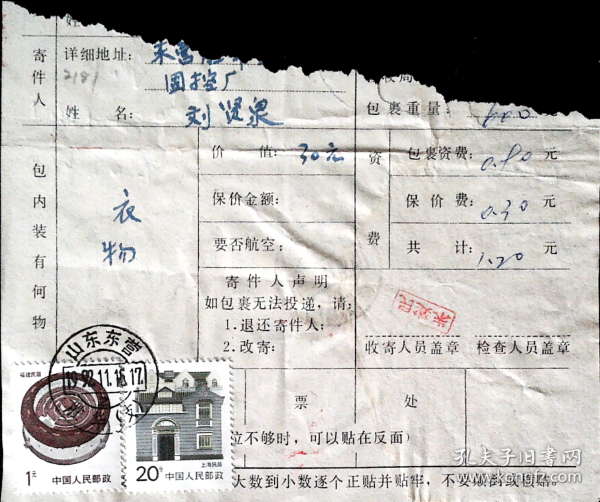 姓
寄件人
详细地址：
2181
固控厂
姓 名： 刘贤泉
包裹重量：
包内装有何物
衣物
价 值： 30元
保价金额：
要否航空：
资费
包裹资费： 0.90 元
保价费： 0.30 元
共 计： 1.20 元
寄件人声明
如包裹无法投递，请：
1.退还寄件人：
2.改寄：
收寄人员盖章 检查人员盖章
山东东营
1992.11.16.17
票 处
位不够时，可以贴在反面）
大数到小数逐个正贴并贴牢，不要颠倒或倒贴。
福建民居
1元 中国人民邮政
上海民居
20分 中国人民邮政
孔夫子旧书网